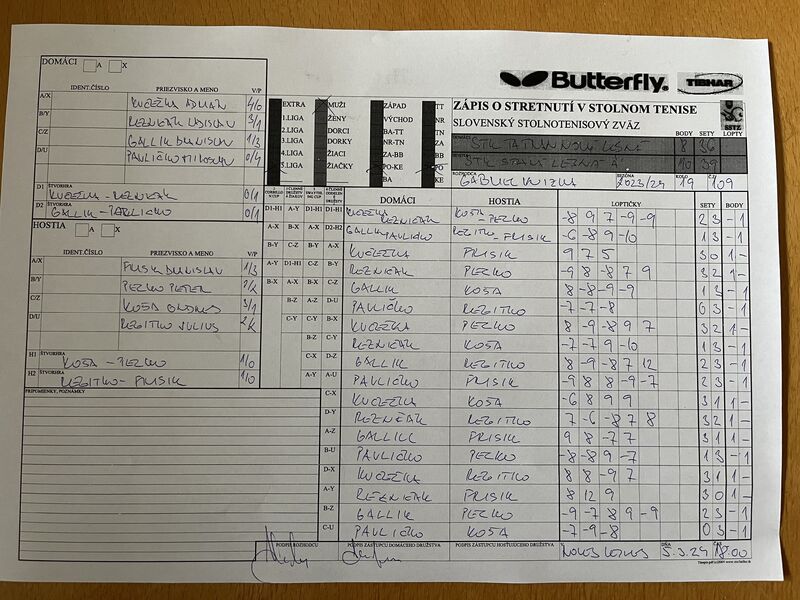 DOMÁCI A X
IDENT.ČÍSLO PRIEZVISKO A MENO V/P
A/X KUČEČKA ADRIÁN 4/0
B/Y REZNIČÁK LADISLAV 3/1
C/Z GALLIK BRANISLAV 1/3
D/U PAVLIČKO MILOSLAV 0/4
D1 ŠTVORHRA
KUČEČKA - REZNIČÁK 0/1
D2 ŠTVORHRA
GALLIK - PAVLIČKO 0/1
HOSTIA A X
IDENT.ČÍSLO PRIEZVISKO A MENO V/P
A/X FRISIK BRANISLAV 1/3
B/Y PECKO PETER
C/Z KOŠA ONDREJ 3/1
D/U REGITKO JULIUS
H1 ŠTVORHRA
KOŠA - PECKO 1/0
H2 ŠTVORHRA
REGITKO - FRISIK 1/0
PRIPOMIENKY, POZNÁMKY
EXTRA MUŽI ZÁPAD TT
1.LIGA ŽENY VÝCHOD NR
2.LIGA DORCI BA-TT TN
3.LIGA DORKY NR-TN ZA
4.LIGA ŽIACI ZA-BB BB
5.LIGA ŽIAČKY PO-KE PO
BA KE
Butterfly. TIBHAR
ZÁPIS O STRETNUTÍ V STOLNOM TENISE
SLOVENSKÝ STOLNOTENISOVÝ ZVÄZ SSTZ
BODY SETY LOPTY
DOMÁCI STK TATRAN 8 36
HOSTIA STK STARÁ LESNÁ A 10 39
ROZHODCA GABRIEL KNIZKA SEZÓNA 2023/24 KOLO 19 Č. 109
DOMÁCI HOSTIA LOPTIČKY SETY BODY
D1-H1 A-Y D1-H1 D1-H1 KUČEČKA REZNIČÁK KOŠA - PECKO -8 9 7 -9 -9 2 3 - 1
A-X B-X A-X D2-H2 GALLIK PAVLIČKO REGITKO - FRISIK -6 -8 9 -10 1 3 - 1
B-Y C-Z B-Y A-X KUČEČKA FRISIK 9 7 5 3 0 1 -
A-Y D1-H1 C-Z B-Y REZNIČÁK PECKO -9 8 -8 7 9 3 2 1 -
B-X A-X A-Z C-Z GALLIK KOŠA 8 -8 -9 -9 1 3 - 1
B-Z A-Z D-U PAVLIČKO REGITKO -7 -7 -8 0 3 - 1
C-Y C-Y A-Y KUČEČKA PECKO 8 -9 -8 9 7 3 2 1 -
B-Z B-Z REZNIČÁK KOŠA -7 -7 9 -10 1 3 - 1
C-X D-Z C-U GALLIK REGITKO 8 -9 -8 7 12 2 3 - 1
A-Y A-U D-X PAVLIČKO FRISIK -9 8 8 -9 -7 2 3 - 1
C-X KUČEČKA KOŠA -6 8 9 9 3 1 1 -
D-Y REZNIČÁK REGITKO 7 -6 -8 7 8 3 2 1 -
A-Z GALLIK FRISIK 9 8 -7 7 3 1 1 -
B-U PAVLIČKO PECKO -8 -8 9 -7 1 3 - 1
D-X KUČEČKA REGITKO 8 8 -9 7 3 1 1 -
A-Y REZNIČÁK FRISIK 8 12 9 3 0 1 -
B-Z GALLIK PECKO -9 -7 8 9 -9 2 3 - 1
C-U PAVLIČKO KOŠA -7 -9 -8 0 3 - 1
PODPIS ROZHODCU PODPIS ZÁSTUPCU DOMÁCEHO DRUŽSTVA PODPIS ZÁSTUPCU HOSŤUJÚCEHO DRUŽSTVA DŇA 5.3.24 ČAS 18.00